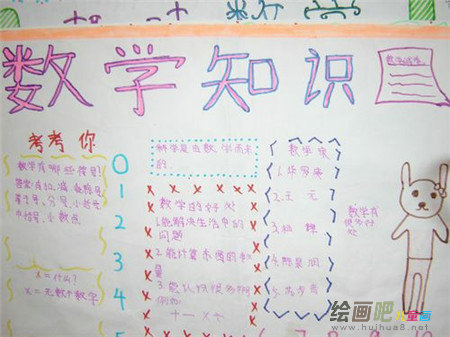 数学知识
考考你
数学有哪些符号?
答案:有加、减、乘、除号
等于号、分号、小括号
中括号、小数点
x=什么?
x=无数个数字
0
1
2
3
4
科学是由数学而来
的
数学的好处
1.能解决生活中的
问题
2.能计算东西的数
量
3.能认识很多
例如:
+ — × ÷
数学家
1.华罗庚
2.王元
4.陈景润
数学有
很多好
处
绘画吧 儿童画
www.huihua8.net